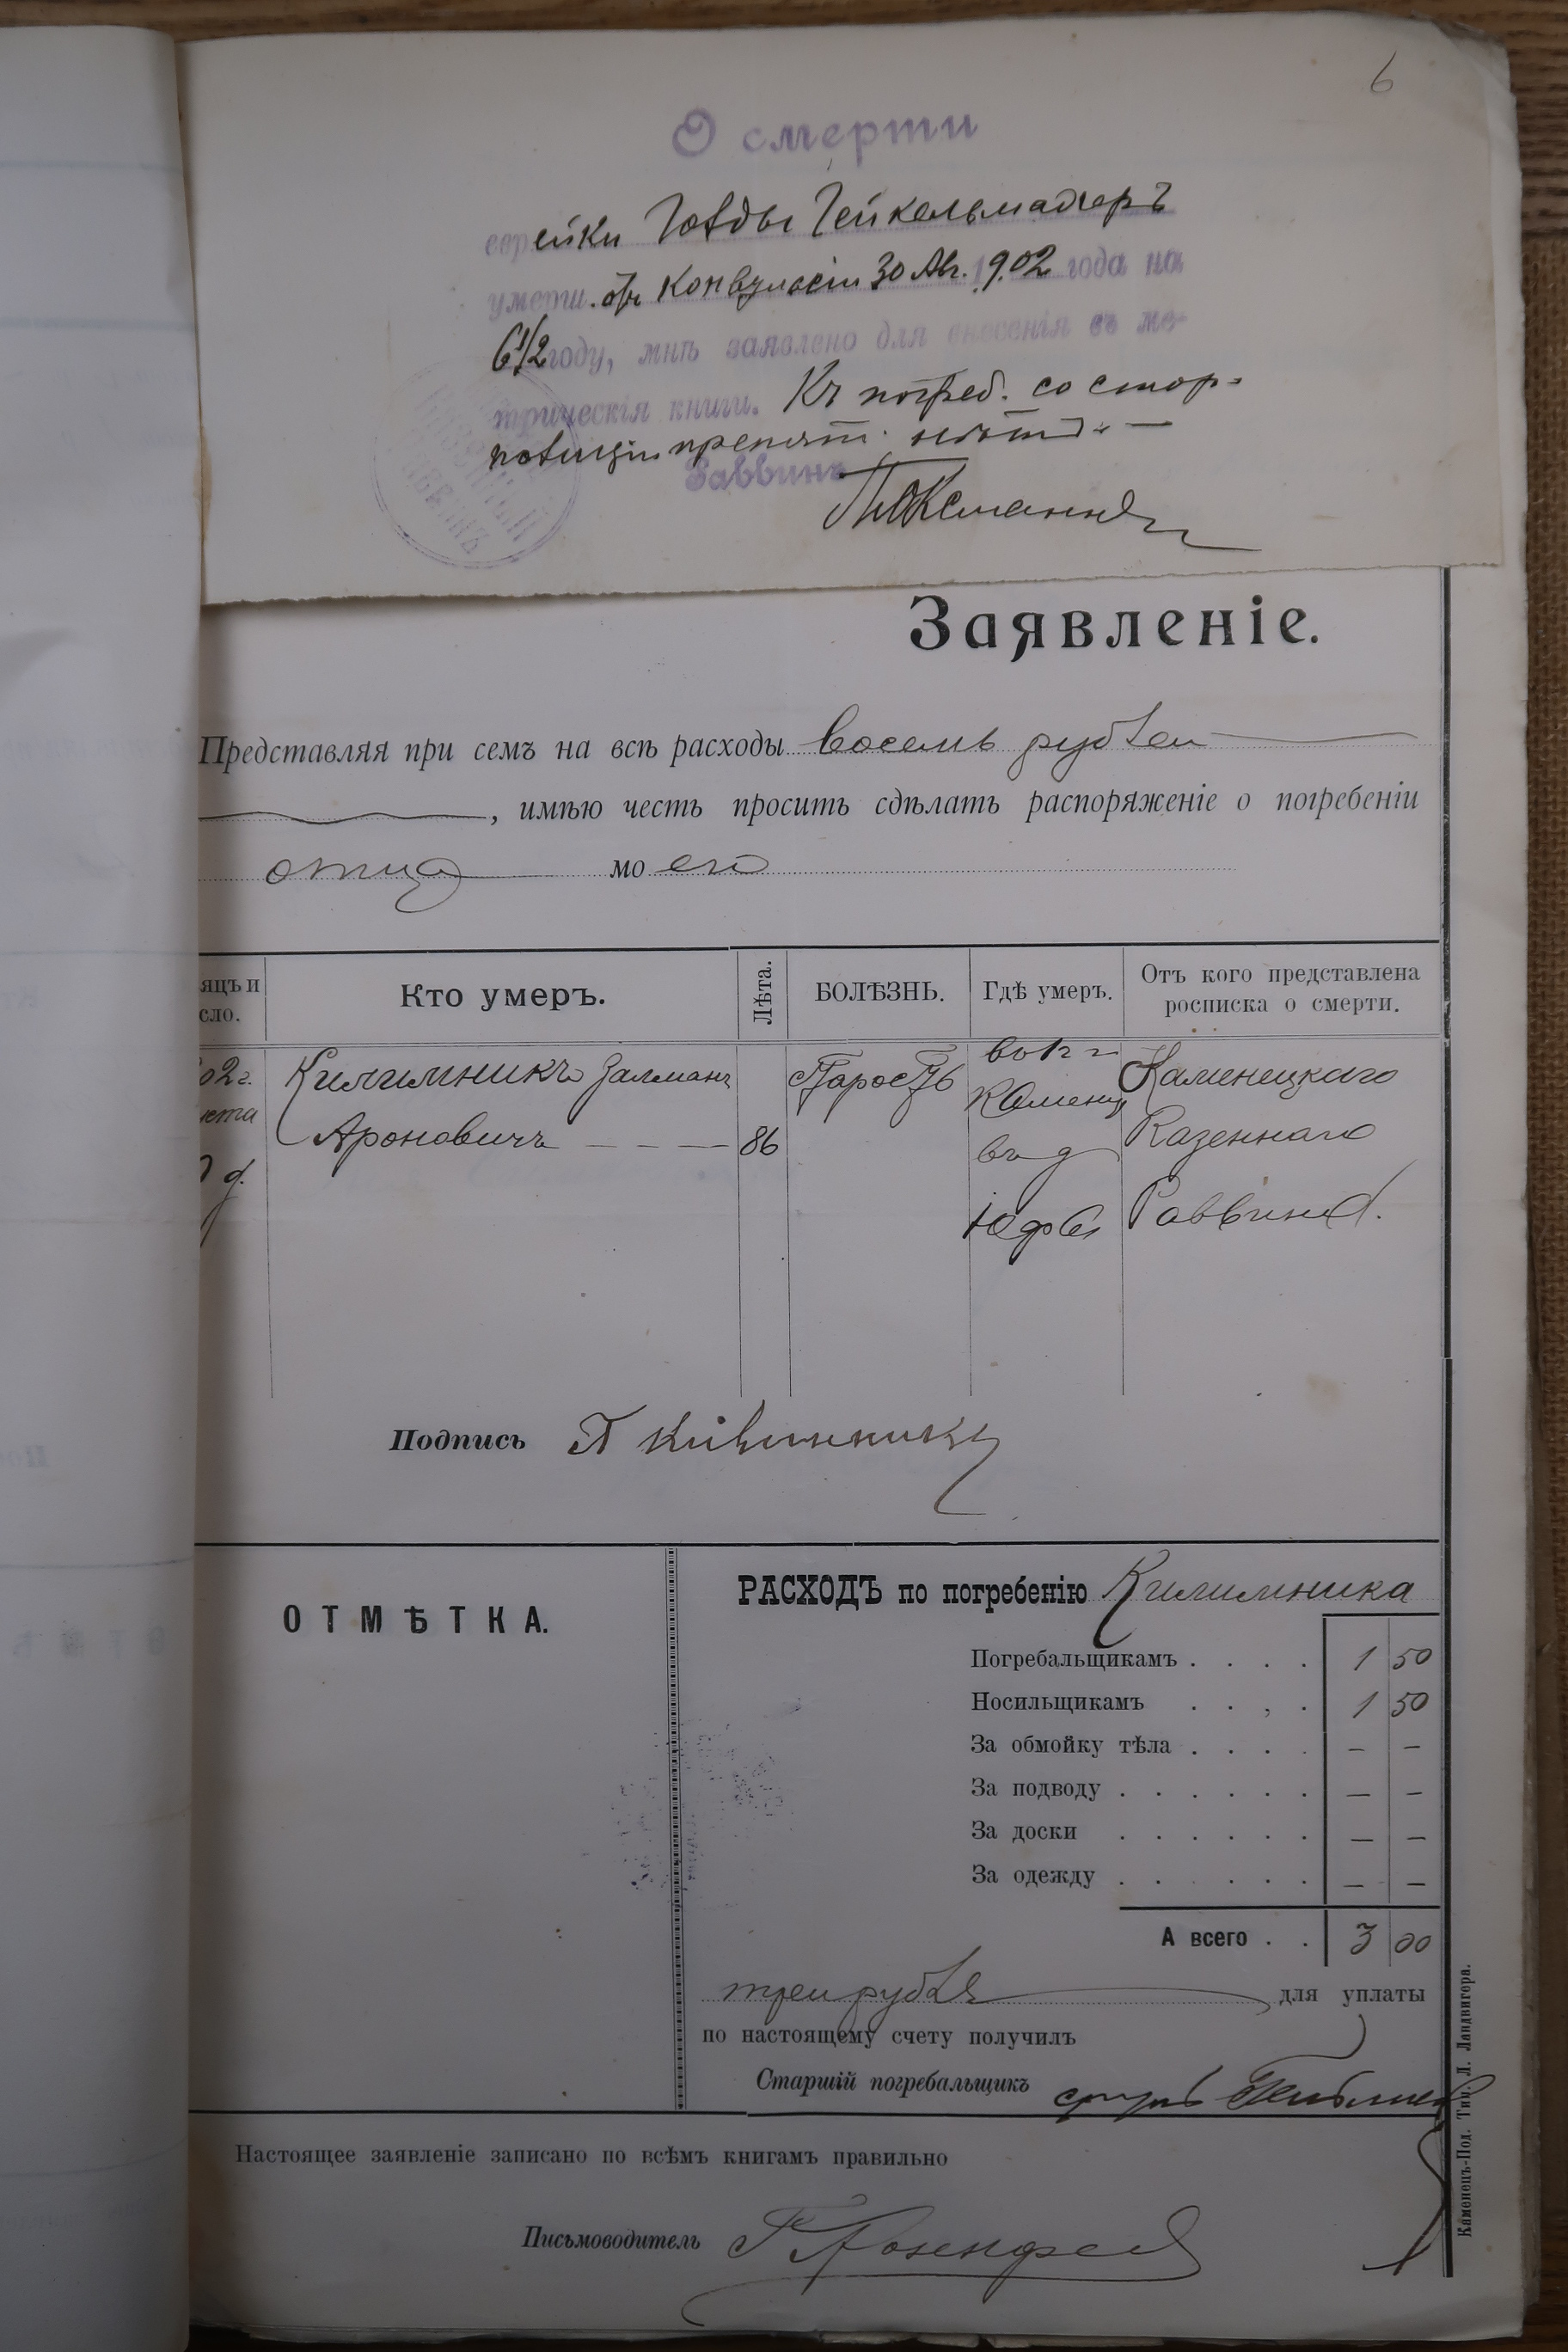 6
О смерти
еврейки Гейкельмахеръ
умети. отъ Конвульсіи 30 Авг. 1902 года на
6 1/2 году, мнѣ заявлено для внесенія въ ме-
трическія книги. Къ погреб. со стор.
полиціи препят. нѣтъ. —
Раввинъ
Заявленіе.
Представляя при семъ на всѣ расходы восемь рублей
, имѣю честь просить сдѣлать распоряженіе о погребеніи
отца моего
яцъ и сло. Кто умеръ. Лѣта. БОЛѢЗНЬ. Гдѣ умеръ. Отъ кого представлена росписка о смерти.
02 г. Килимникъ Залманъ Старость Каменецкаго
Ароновичъ — — — 86 въ д Казеннаго
Раввина.
Подпись Килимникъ
ОТМѢТКА.
РАСХОДЪ по погребенію Килимника
Погребальщикамъ . . . . 1 50
Носильщикамъ . . , . 1 50
За обмойку тѣла . . . . — —
За подводу . . . . . . — —
За доски . . . . . . — —
За одежду . . . . . . — —
А всего . . 3 00
три рубля для уплаты
по настоящему счету получилъ
Старшій погребальщикъ
Настоящее заявленіе записано по всѣмъ книгамъ правильно
Письмоводитель
Каменецъ-Под. Тип. Л. Ландвигера.